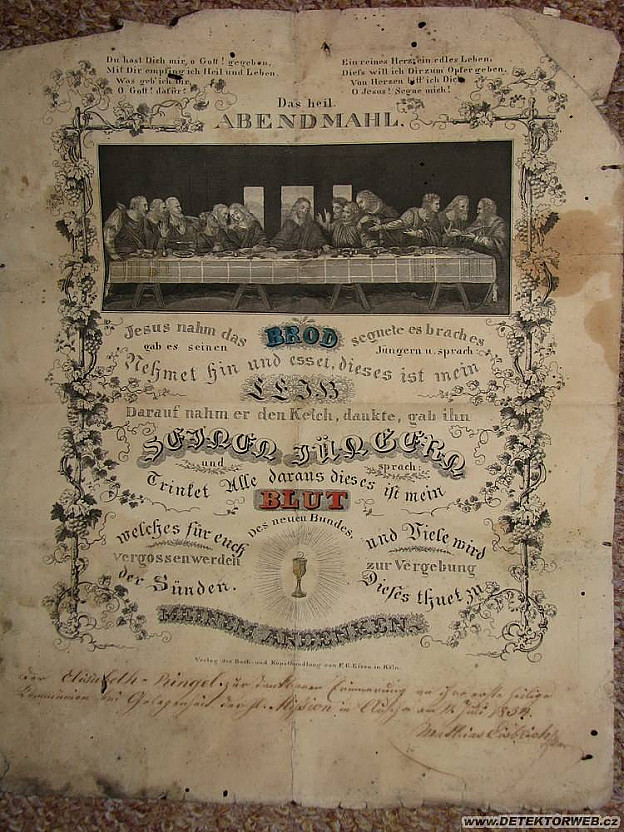 Du hast Dich mir, o Gott! gegeben,
Mit Dir empfing ich Heil und Leben,
Was geb' ich Dir,
O Gott! dafür?
Ein reines Herz, ein edles Leben,
Diefs will ich Dir zum Opfer geben,
Von Herzen bitt' ich Dich
O Jesus! Segne mich!
Das heil.
ABENDMAHL.
Jesus nahm das BROD segnete es brach es
gab es seinen Jüngern u. sprach
Nehmet hin und esset, dieses ist mein
LEIB
Darauf nahm er den Kelch, dankte, gab ihn
SEINEN JÜNGERN
und sprach:
Trinket Alle daraus dieses ist mein
BLUT
des neuen Bundes,
welches für euch und Viele wird
vergossen werden zur Vergebung
der Sünden. Dieses thuet zu
MEINEM ANDENKEN.
Verlag der Buch- und Kunsthandlung von F.C. Eisen in Köln.
der Elisabeth Ringel zur dankbaren Erinnerung an ihre erste heilige
Communion bei Gelegenheit der hl. Mission in am Juli
Mathias
www.DETEKTORWEB.cz